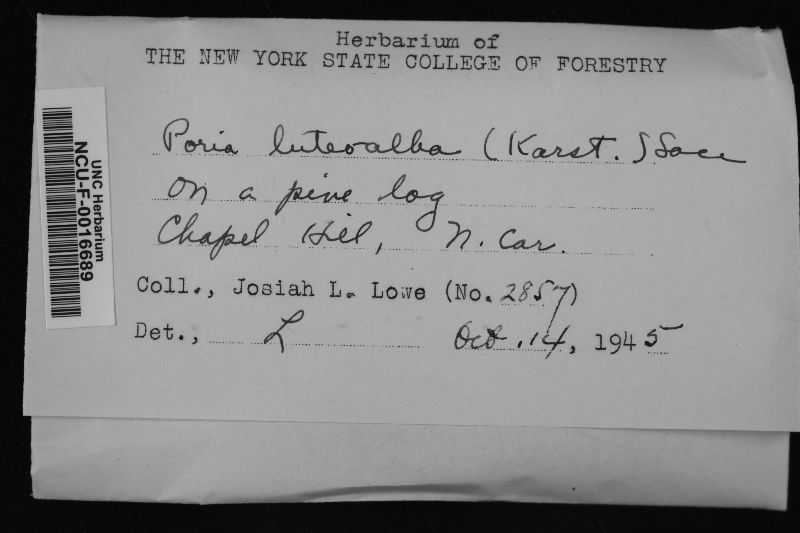 Herbarium of
THE NEW YORK STATE COLLEGE OF FORESTRY
Poria luteoalba (Karst.) Sacc
on a pine log
Chapel Hill, N. Car.
Coll., Josiah L. Lowe (No. 2857)
Det., L Oct. 14, 1945
UNC Herbarium
NCU-F-0016689